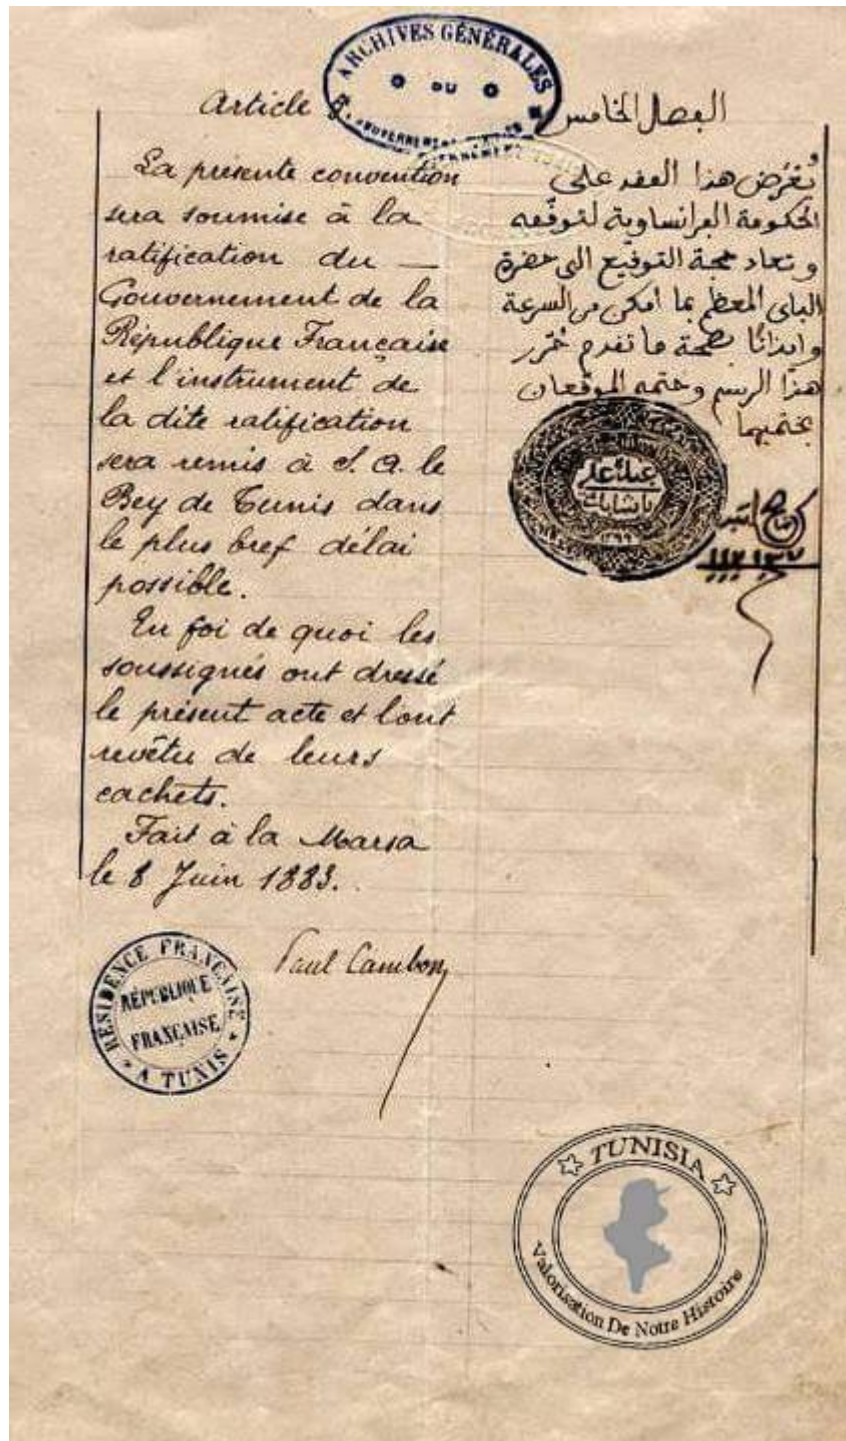 ARCHIVES GÉNÉRALES
DU
Article
La présente convention
sera soumise à la
ratification du —
Gouvernement de la
République Française
et l'instrument de
la dite ratification
sera remis à S. A. le
Bey de Tunis dans
le plus bref délai
possible.
En foi de quoi les
soussignés ont dressé
le présent acte et l'ont
revêtu de leurs
cachets.
Fait à la Marsa
le 8 Juin 1883.
Paul Cambon
RÉSIDENCE FRANÇAISE
RÉPUBLIQUE
FRANÇAISE
A TUNIS
الڢصل الخامس
يُعْرَض هذا العڧد على
الحكومة الڢرانساوية لتوڧّعه
وتعاد نسخة التوڧيع الى حضرة
الباي المعظم بما امكن من السرعة
وايذانًا بصحة ما تڧدم حُرّر
هذا الرسم وختمه الموڧّعان
بختميهما
عبده علي
باشا باي
١٢٩٩
TUNISIA
Valorisation De Notre Histoire